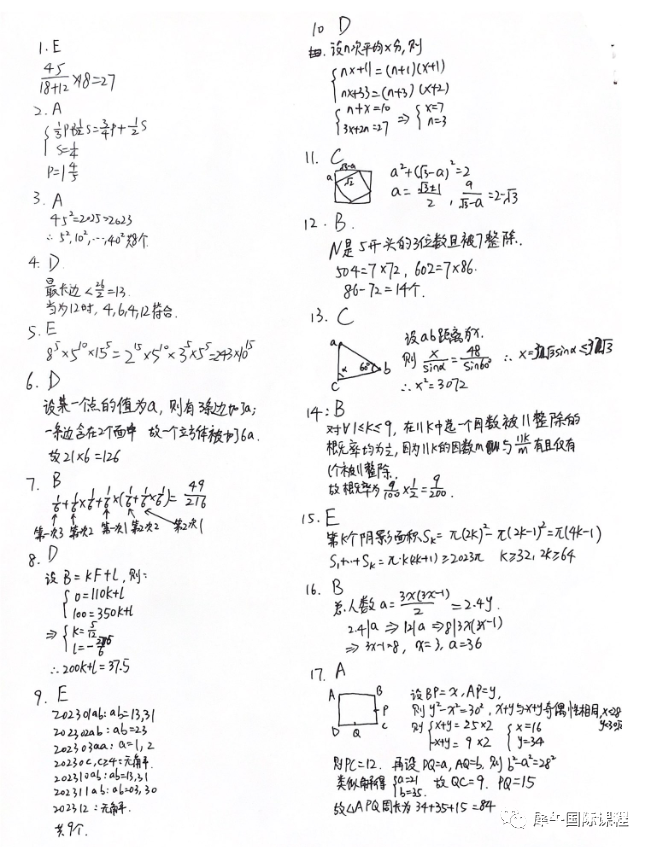 1. E
45/(18+12) × 18 = 27
2. A
{ 1/3P + 1/2S = 3/4P + 1/2S
S = 1/4
P = 1 4/5
3. A
45² = 2025 > 2023
∴ 5², 10², ..., 40² 共8个.
4. D.
最长边 < 26/2 = 13.
当为12时, 4, 6, 4, 12符合.
5. E
8⁵ × 5¹⁰ × 15⁵ = 2¹⁵ × 5¹⁰ × 3⁵ × 5⁵ = 243 × 10¹⁵
6. D
设某一个点的值为a, 则有3条边加了a;
一条边含在2个面中 故一个立方体被加了6a.
故21×6=126
7. B
1/6 + 1/6 × 1/6 + 1/6 × (1/6 + 1/6 × 1/6) = 49/216
第一次3 第一次2 第一次1 第2次2 第2次1
8. D
设 B = kF + l, 则:
{ 0 = 110k + l
100 = 350k + l
⇒ { k = 5/12
l = -275/6
∴ 200k + l = 37.5
9. E
202301ab: ab=13,31
202302ab: ab=23
202303aa: a=1, 2
20230c, c≥4: 无解.
202310ab: ab=13,31
202311ab: ab=03,30
202312: 无解.
共9个.
10 D
设n次平均x分, 则
{ nx+11 = (n+1)(x+1)
nx+33 = (n+3)(x+2)
{ n+x=10
3x+2n=27 ⇒ { x=7
n=3
11. C
√3-a
a
√2
a² + (√3-a)² = 2
a = (√3±1)/2, a/(√3-a) = 2-√3
12. B.
N是5开头的3位数且被7整除.
504=7×72, 602=7×86.
86-72=14个.
13. C
a
α 60° b
c
设ab距离为x.
则 x/sinα = 48/sin60° ∴ x=32√3sinα≤32√3
∴ x²=3072
14: B
对∀1≤k≤9, 在11k中选一个因数被11整除的
概率均为1/2, 因为11k的因数m与11k/m有且仅有
1个被11整除.
故概率为 9/100 × 1/2 = 9/200.
15. E
第k个阴影面积Sₖ = π(2k)² - π(2k-1)² = π(4k-1)
S₁+...+Sₖ = π·k(2k+1) ≥ 2023π k≥32, 2k≥64
16. B
总人数 a = 3x(3x-1)/2 = 2.4y.
2.4|a ⇒ 12|a ⇒ 8|3x(3x-1)
⇒ 3x-1=8, x=3, a=36
17. A
A B
P
D Q C
设BP=x, AP=y,
则 y²-x²=30². x+y与-x+y奇偶性相同,
则 { x+y = 25×2
-x+y = 9×2
{ x=16
y=34
则PC=12. 再设DQ=a, AQ=b, 则 b²-a²=28²
类似解得 { a=21
b=35. 故QC=9. PQ=15
故△APQ周长为 34+35+15=84
国际课程